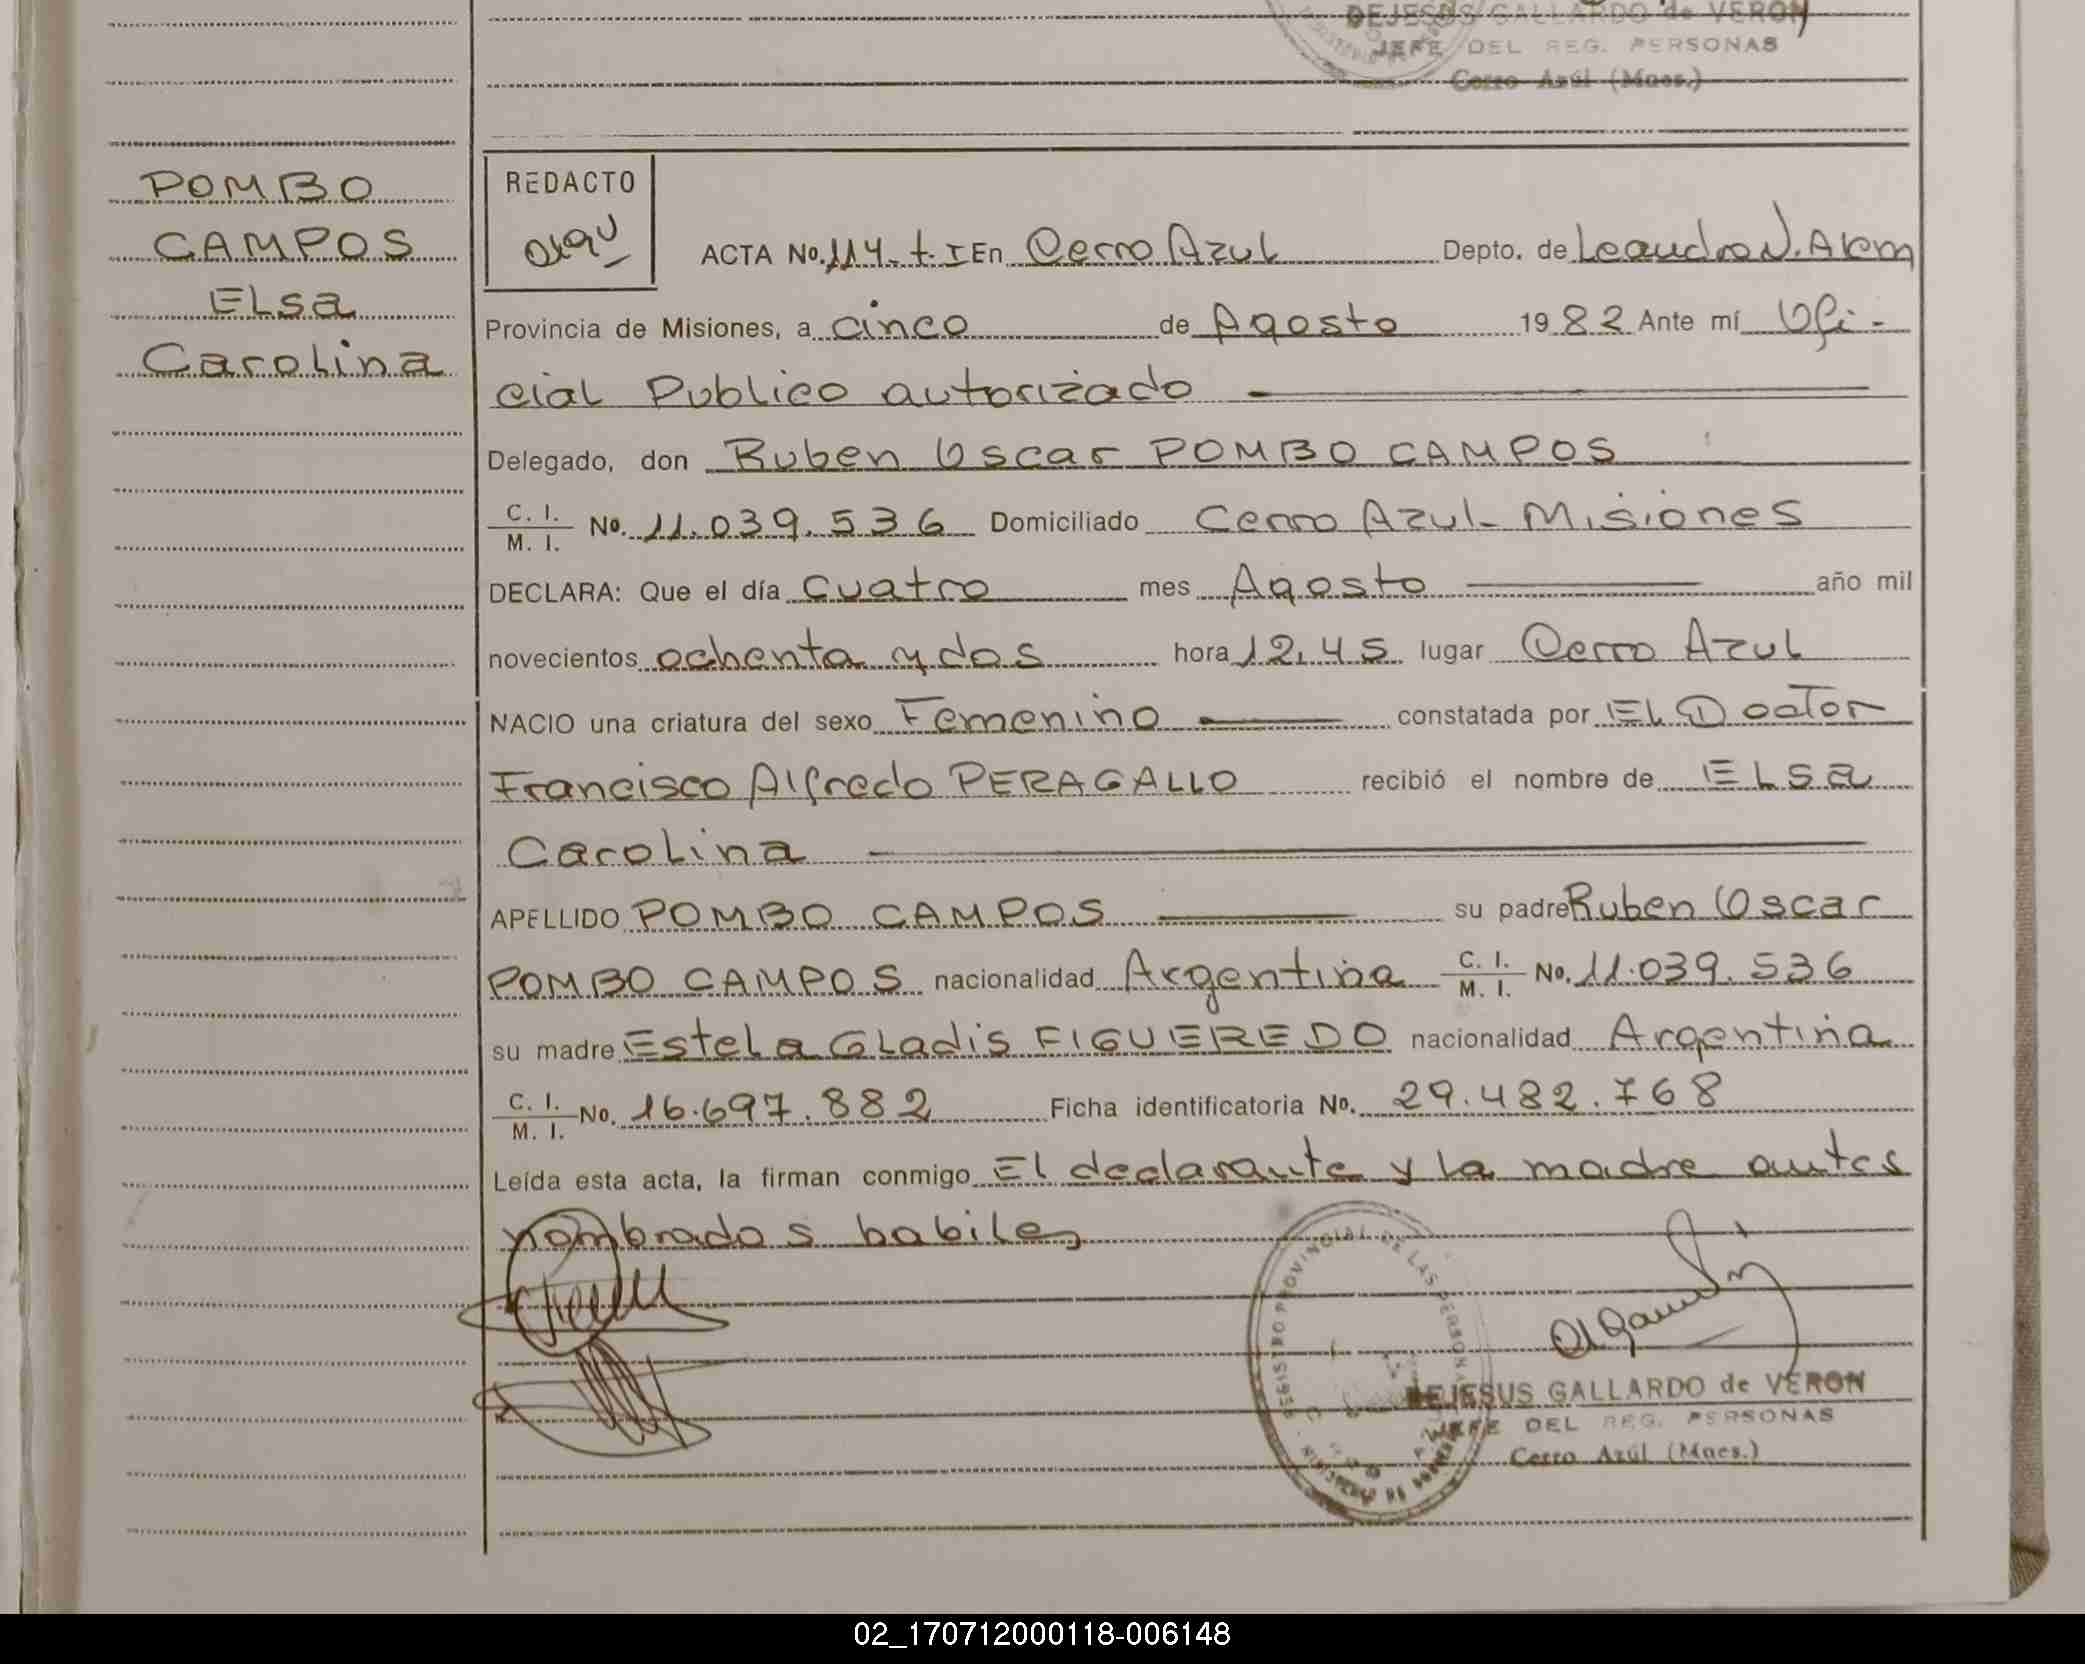 DEJESUS GALLARDO de VERON
JEFE DEL REG. PERSONAS
Cerro Azúl (Mnes.)
POMBO
CAMPOS
ELsa
Carolina
REDACTO
ACTA No. 114-t.I En Cerro Azul Depto. de Leandro N. Alem
Provincia de Misiones, a cinco de Agosto 1982 Ante mí Ofi-
cial Publico autorizado
Delegado, don Ruben Oscar POMBO CAMPOS
C. I. / M. I. No. 11.039.536 Domiciliado Cerro Azul- Misiones
DECLARA: Que el día cuatro mes Agosto año mil
novecientos ochenta y dos hora 12,45 lugar Cerro Azul
NACIO una criatura del sexo Femenino constatada por EL Doctor
Francisco Alfredo PERAGALLO recibió el nombre de ELsa
Carolina
APELLIDO POMBO CAMPOS su padre Ruben Oscar
POMBO CAMPOS nacionalidad Argentina C. I. / M. I. No. 11.039.536
su madre Estela Gladis FIGUEREDO nacionalidad Argentina
C. I. / M. I. No. 16.697.882 Ficha identificatoria No. 29.482.768
Leída esta acta, la firman conmigo El declarante y la madre antes
nombrados habiles
REGISTRO PROVINCIAL DE LAS PERSONAS
DEJESUS GALLARDO de VERON
JEFE DEL REG. PERSONAS
Cerro Azúl (Mnes.)
02_170712000118-006148